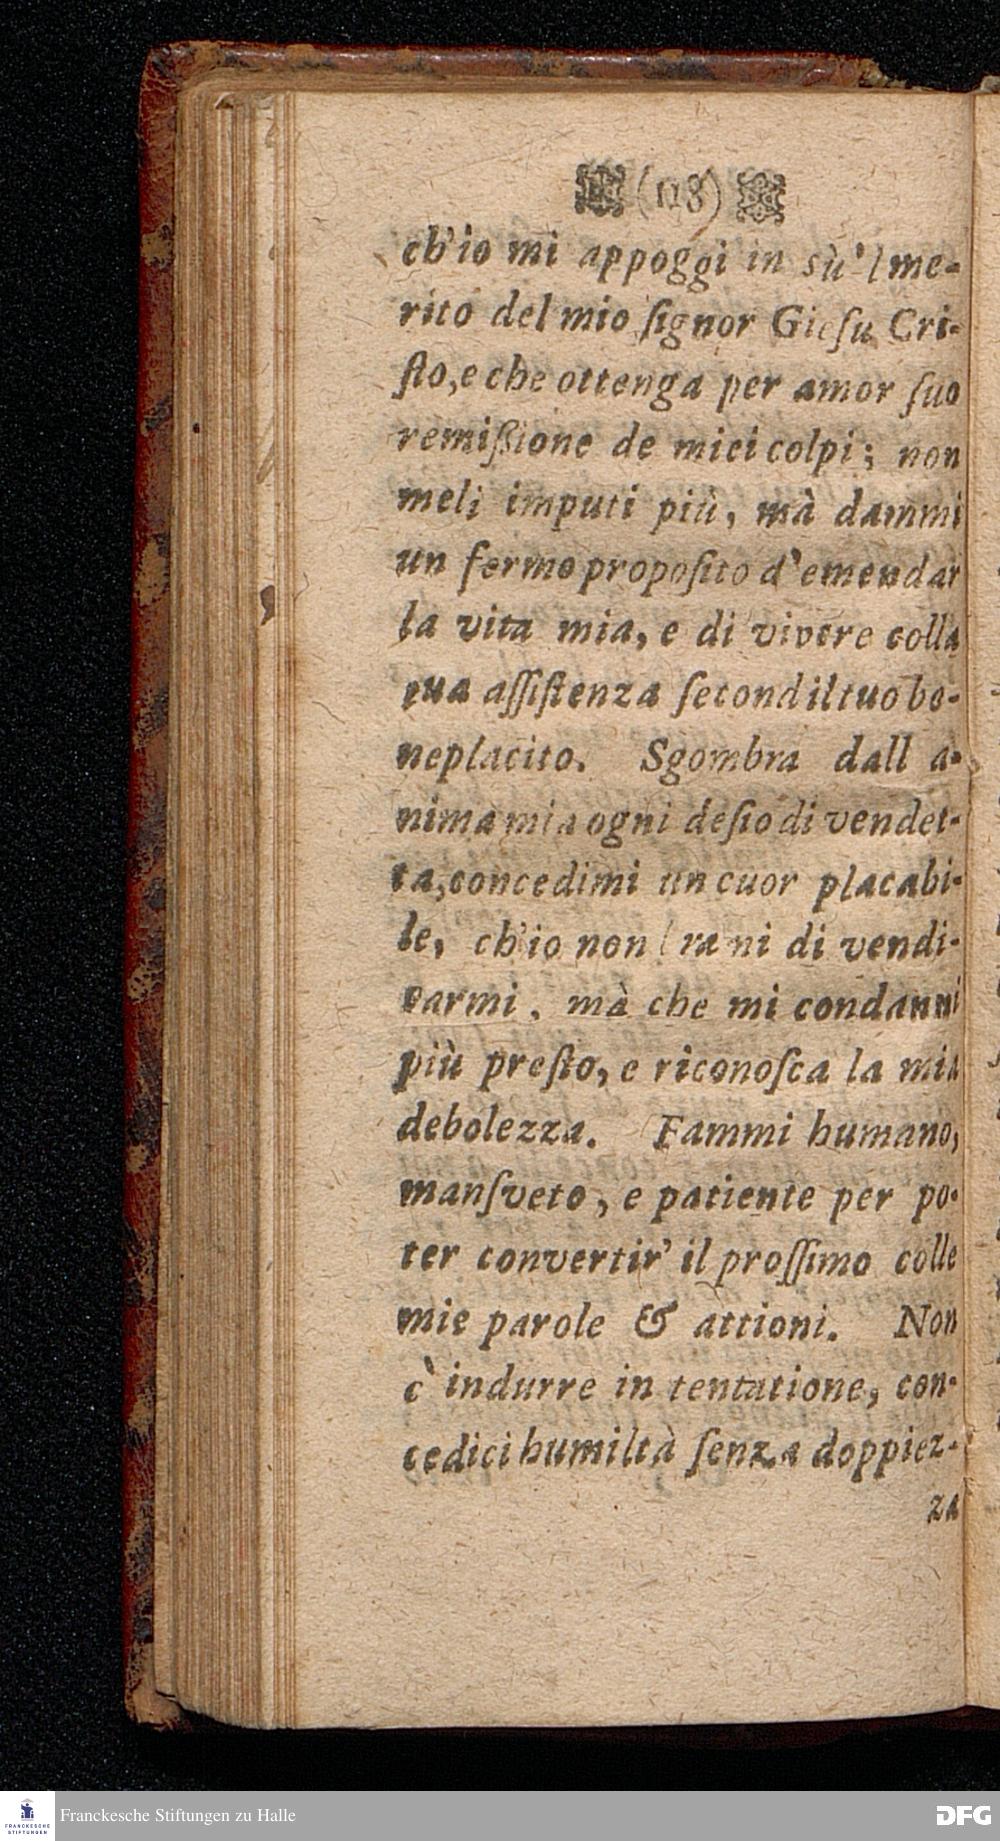 (118)
ch'io mi appoggi in sù'l me-
rito del mio ſignor Gieſu Cri-
ſto, e che ottenga per amor ſuo
remißione de miei colpi; non
meli imputi più, mà dammi
un fermo propoſito d'emendar
la vita mia, e di vivere colla
tua aſſiſtenza ſecond il tuo be-
neplacito. Sgombra dall a-
nima mia ogni deſio di vendet-
ta, concedimi un cuor placabi-
le, ch'io non di vendi-
carmi, mà che mi condanni
più preſto, e riconoſca la mia
debolezza. Fammi humano,
manſveto, e patiente per po-
ter convertir' il proſſimo colle
mie parole & attioni. Non
c' indurre in tentatione, con-
cedici humiltà ſenza doppiez-
za
FRANCKESCHE STIFTUNGEN
Franckesche Stiftungen zu Halle
DFG